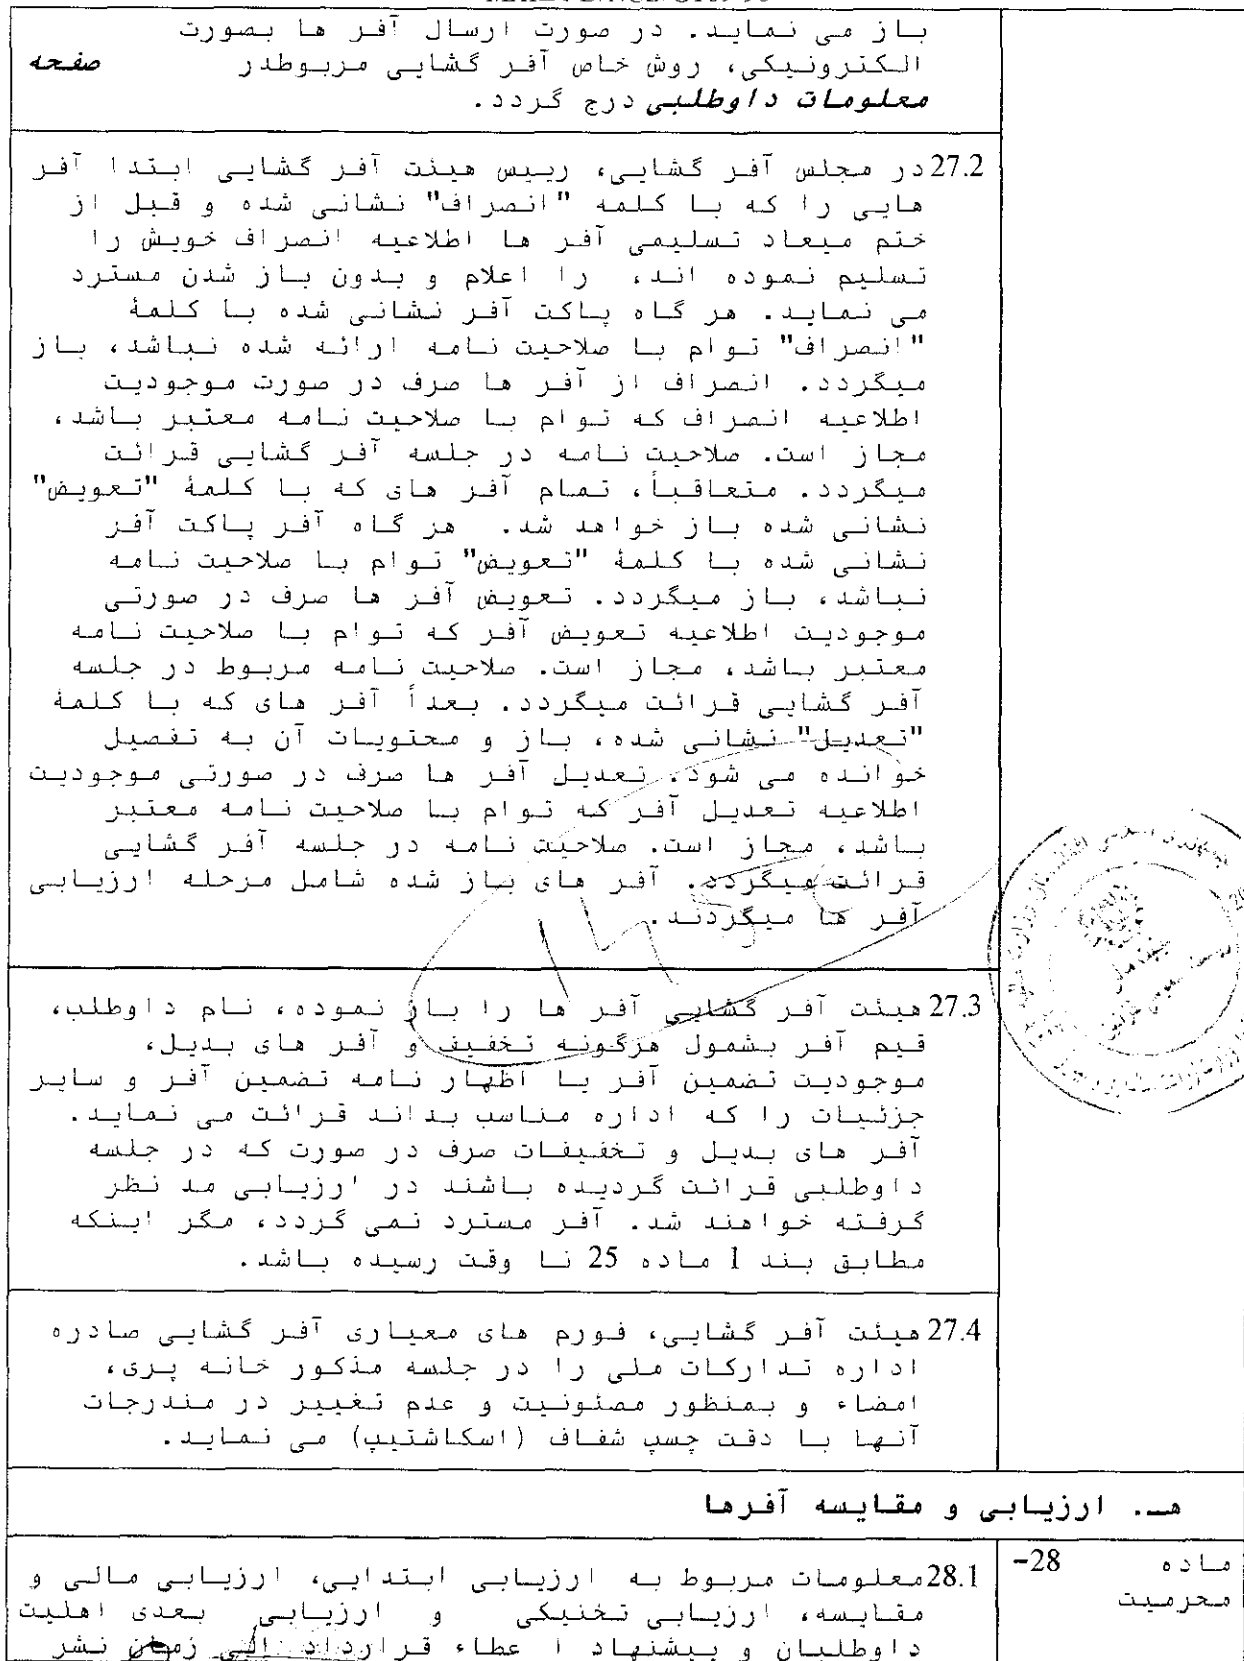 باز می نماید. در صورت ارسال آفر ها بصورت
الکترونیکی، روش خاص آفر گشایی مربوطدر صفحه
معلومات داوطلبی درج گردد.
27.2 در مجلس آفر گشایی، رییس هیئت آفر گشایی ابتدا آفر
هایی را که با کلمه "انصراف" نشانی شده و قبل از
ختم میعاد تسلیمی آفر ها اطلاعیه انصراف خویش را
تسلیم نموده اند، را اعلام و بدون باز شدن مسترد
می نماید. هر گاه پاکت آفر نشانی شده با کلمۀ
"انصراف" توام با صلاحیت نامه ارائه شده نباشد، باز
میگردد. انصراف از آفر ها صرف در صورت موجودیت
اطلاعیه انصراف که توام با صلاحیت نامه معتبر باشد،
مجاز است. صلاحیت نامه در جلسه آفر گشایی قرائت
میگردد. متعاقباً، تمام آفر های که با کلمۀ "تعویض"
نشانی شده باز خواهد شد. هر گاه آفر پاکت آفر
نشانی شده با کلمۀ "تعویض" توام با صلاحیت نامه
نباشد، باز میگردد. تعویض آفر ها صرف در صورتی
موجودیت اطلاعیه تعویض آفر که توام با صلاحیت نامه
معتبر باشد، مجاز است. صلاحیت نامه مربوط در جلسه
آفر گشایی قرائت میگردد. بعداً آفر های که با کلمۀ
"تعدیل" نشانی شده، باز و محتویات آن به تفصیل
خوانده می شود. تعدیل آفر ها صرف در صورتی موجودیت
اطلاعیه تعدیل آفر که توام با صلاحیت نامه معتبر
باشد، مجاز است. صلاحیت نامه در جلسه آفر گشایی
قرائت میگردد. آفر های باز شده شامل مرحله ارزیابی
آفر ها میگردند.
27.3 هیئت آفر گشایی آفر ها را باز نموده، نام داوطلب،
قیم آفر بشمول هرگونه تخفیف و آفر های بدیل،
موجودیت تضمین آفر یا اظهار نامه تضمین آفر و سایر
جزئیات را که اداره مناسب بداند قرائت می نماید.
آفر های بدیل و تخفیفات صرف در صورت که در جلسه
داوطلبی قرائت گردیده باشند در ارزیابی مد نظر
گرفته خواهند شد. آفر مسترد نمی گردد، مگر اینکه
مطابق بند 1 ماده 25 نا وقت رسیده باشد.
27.4 هیئت آفر گشایی، فورم های معیاری آفر گشایی صادره
اداره تدارکات ملی را در جلسه مذکور خانه پری،
امضاء و بمنظور مصئونیت و عدم تغییر در مندرجات
آنها با دقت چسپ شفاف (اسکاشتیپ) می نماید.
هـ. ارزیابی و مقایسه آفرها
ماده 28-
محرمیت
28.1 معلومات مربوط به ارزیابی ابتدایی، ارزیابی مالی و
مقایسه، ارزیابی تخنیکی و ارزیابی بعدی اهلیت
داوطلبان و پیشنهاد ا عطاء قرارداد الی زمان نشر